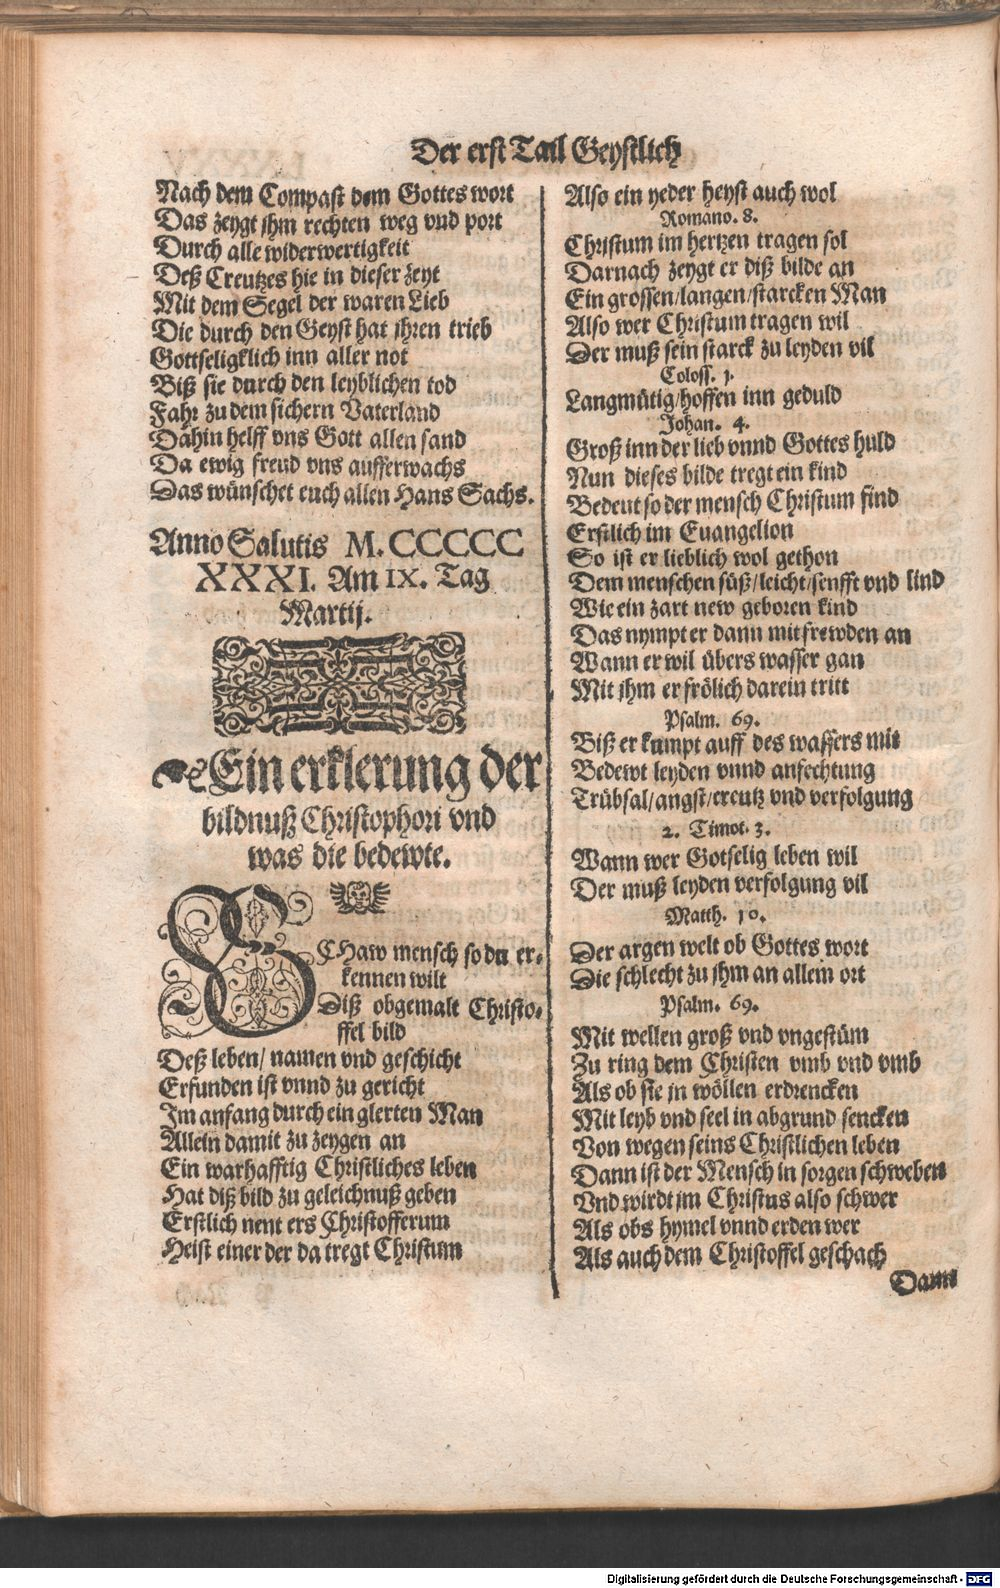 Der erst Tail Geystlich
Nach dem Compast dem Gottes wort
Das zeygt jhm rechten weg vnd port
Durch alle widerwertigkeit
Deß Creutzes hie in dieser zeyt
Mit dem Segel der waren Lieb
Die durch den Geyst hat jhren trieb
Gottseligklich inn aller not
Biß sie durch den leyblichen tod
Fahr zu dem sichern Vaterland
Dahin helff vns Gott allen sand
Da ewig freud vns aufferwachs
Das wünschet euch allen Hans Sachs.
Anno Salutis M. CCCCC
XXXI. Am IX. Tag
Martij.
Ein erklerung der
bildnuß Christophori vnd
was die bedewte.
SCHaw mensch so du er-
kennen wilt
Diß obgemalt Christo-
ffel bild
Deß leben/ namen vnd geschicht
Erfunden ist vnnd zu gericht
Im anfang durch ein glerten Man
Allein damit zu zeygen an
Ein warhafftig Christliches leben
Hat diß bild zu geleichnuß geben
Erstlich nent ers Christofferum
Heist einer der da tregt Christum
Also ein yeder heyst auch wol
Romano. 8.
Christum im hertzen tragen sol
Darnach zeygt er diß bilde an
Ein grossen/langen/starcken Man
Also wer Christum tragen wil
Der muß sein starck zu leyden vil
Coloss. 1.
Langmütig/hoffen inn geduld
Johan. 4.
Groß inn der lieb vnnd Gottes huld
Nun dieses bilde tregt ein kind
Bedeut so der mensch Christum find
Erstlich im Euangelion
So ist er lieblich wol gethon
Dem menschen süß/leicht/senfft vnd lind
Wie ein zart new geboren kind
Das nympt er dann mit frewden an
Wann er wil übers wasser gan
Mit jhm er frölich darein tritt
Psalm. 69.
Biß er kumpt auff des wassers mit
Bedewt leyden vnnd anfechtung
Trübsal/angst/creutz vnd verfolgung
2. Timot. 3.
Wann wer Gotselig leben wil
Der muß leyden verfolgung vil
Matth. 10.
Der argen welt ob Gottes wort
Die schlecht zu jhm an allem ort
Psalm. 69.
Mit wellen groß vnd vngestüm
Zu ring dem Christen vmb vnd vmb
Als ob sie jn wöllen erdrencken
Mit leyb vnd seel in abgrund sencken
Von wegen seins Christlichen leben
Dann ist der Mensch in sorgen schweben
Vnd wirdt im Christus also schwer
Als obs hymel vnnd erden wer
Als auch dem Christoffel geschach
Dann
Digitalisierung gefördert durch die Deutsche Forschungsgemeinschaft - DFG